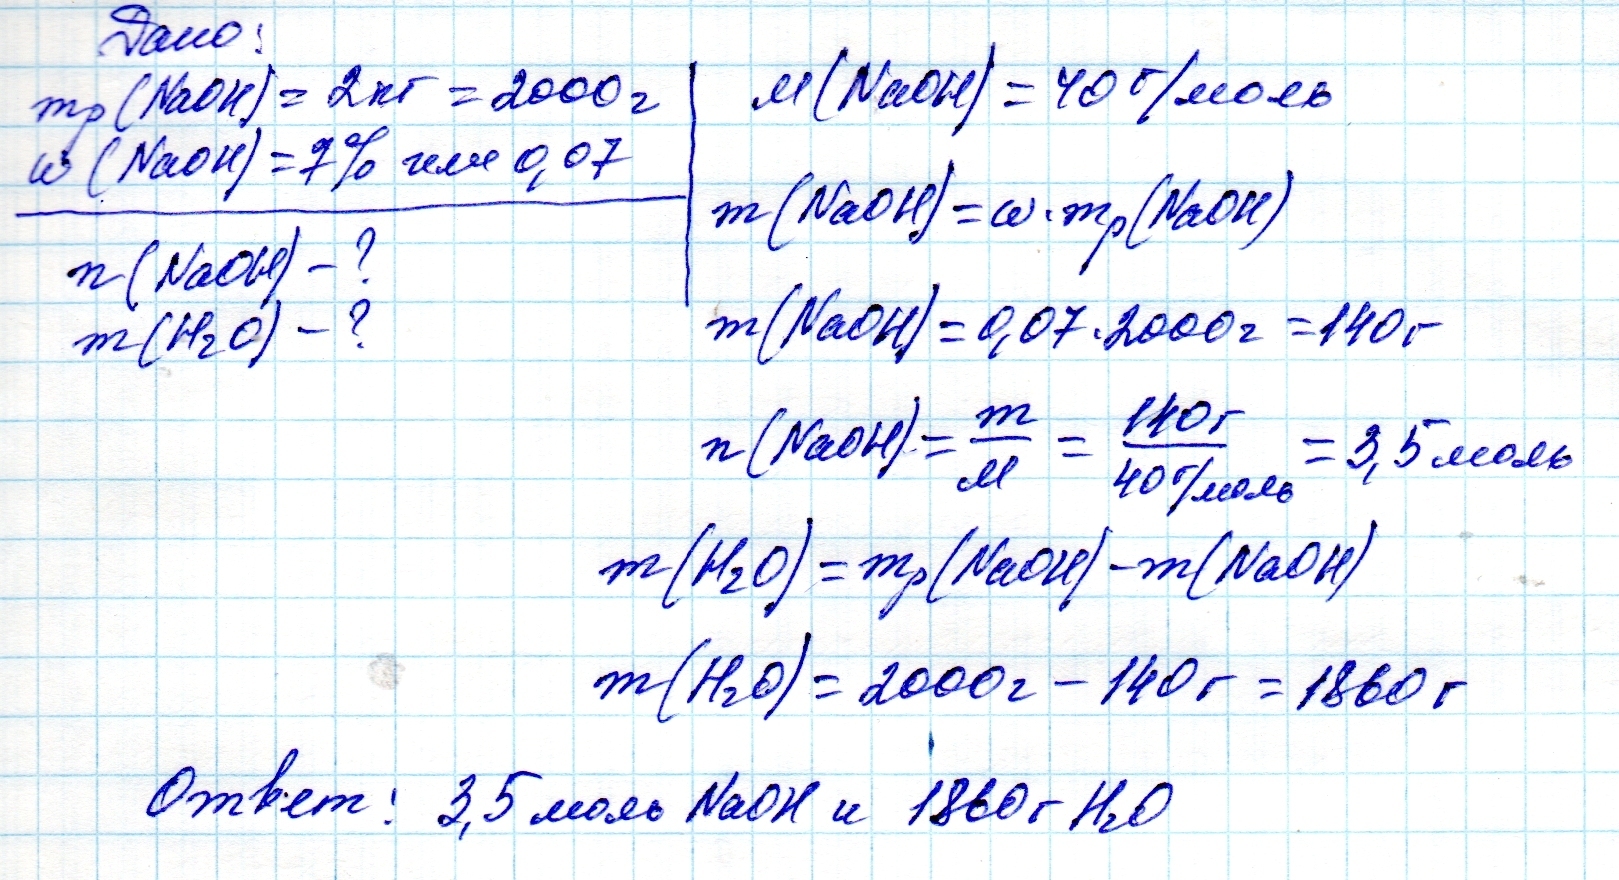 Дано:
mр(NaOH) = 2кг = 2000г
ω(NaOH) = 7% или 0,07
n(NaOH) - ?
m(H₂O) - ?
M(NaOH) = 40 г/моль
m(NaOH) = ω · mр(NaOH)
m(NaOH) = 0,07 · 2000г = 140г
n(NaOH) = m/M = 140г/40г/моль = 3,5 моль
m(H₂O) = mр(NaOH) - m(NaOH)
m(H₂O) = 2000г - 140г = 1860г
Ответ: 3,5 моль NaOH и 1860г H₂O